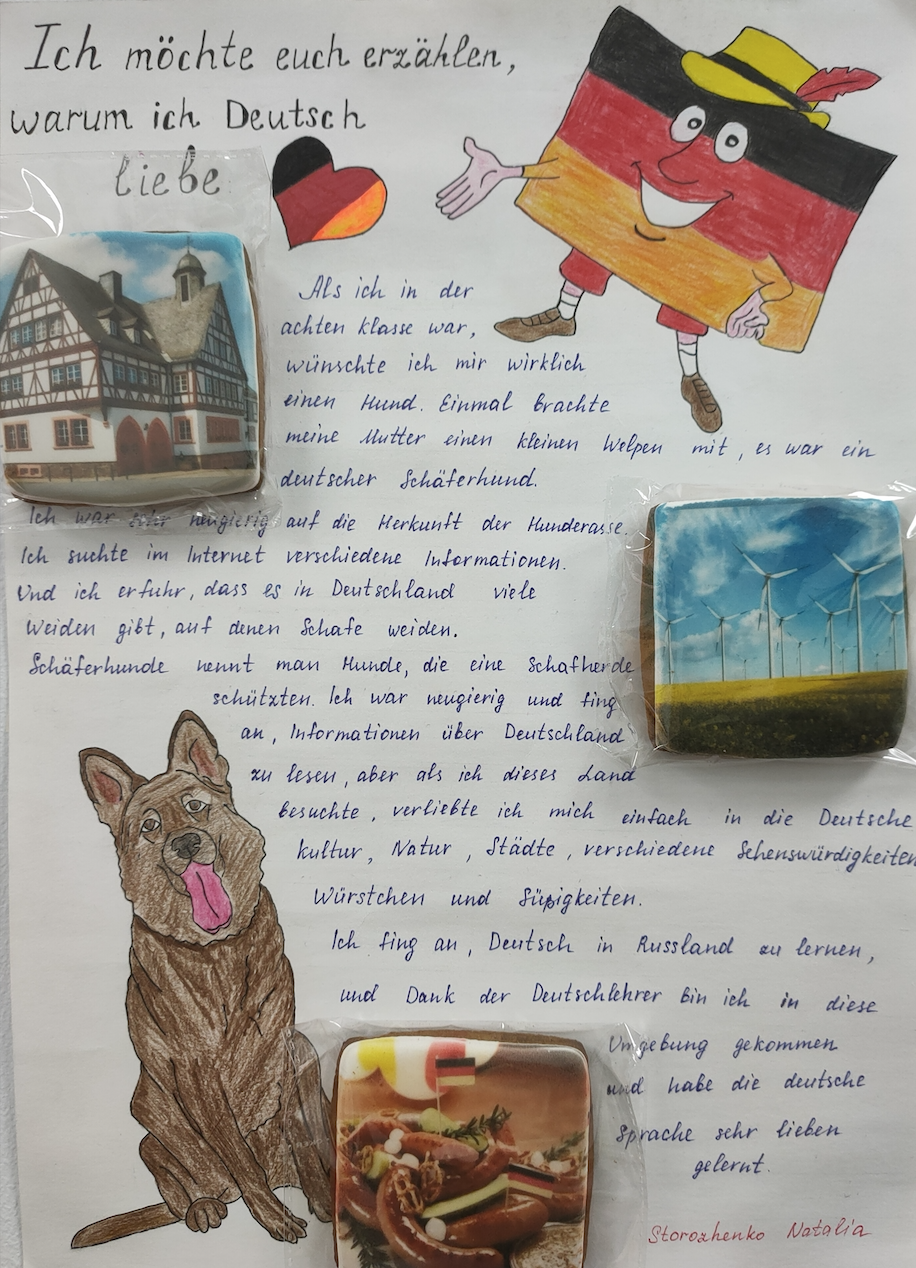 Ich möchte euch erzählen,
warum ich Deutsch
liebe
Als ich in der
achten Klasse war,
wünschte ich mir wirklich
einen Hund. Einmal brachte
meine Mutter einen kleinen Welpen mit, es war ein
deutscher Schäferhund.
Ich war sehr neugierig auf die Herkunft der Hunderasse.
Ich suchte im Internet verschiedene Informationen.
Und ich erfuhr, dass es in Deutschland viele
Weiden gibt, auf denen Schafe weiden.
Schäferhunde nennt man Hunde, die eine Schafherde
schützten. Ich war neugierig und fing
an, Informationen über Deutschland
zu lesen, aber als ich dieses Land
besuchte, verliebte ich mich einfach in die Deutsche
Kultur, Natur, Städte, verschiedene Sehenswürdigkeiten
Würstchen und Süßigkeiten.
Ich fing an, Deutsch in Russland zu lernen,
und Dank der Deutschlehrer bin ich in diese
Umgebung gekommen
und habe die deutsche
Sprache sehr lieben
gelernt.
Storozhenko Natalia